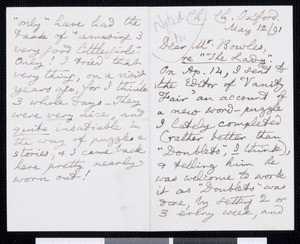 "only" have had the
task of "amusing 3
very good little girls".
Only! I tried that
very thing, on a visit
years ago, for I think
3 whole days — they
were very nice, and
quite insatiable in
the way of puzzles &
stories, & I came back
here pretty nearly
worn out!
Ch. Ch. Oxford.
May 12/91
Dear Mr. Bowles,
re "The Lady"
On Ap. 14, I sent to
the Editor of "Vanity
Fair" an account of
a new word-puzzle
I lately completed
(rather better than
"Doublets", I think),
& telling him he
was welcome to work
it as "Doublets" was
done, by setting 2 or
3 every week, and